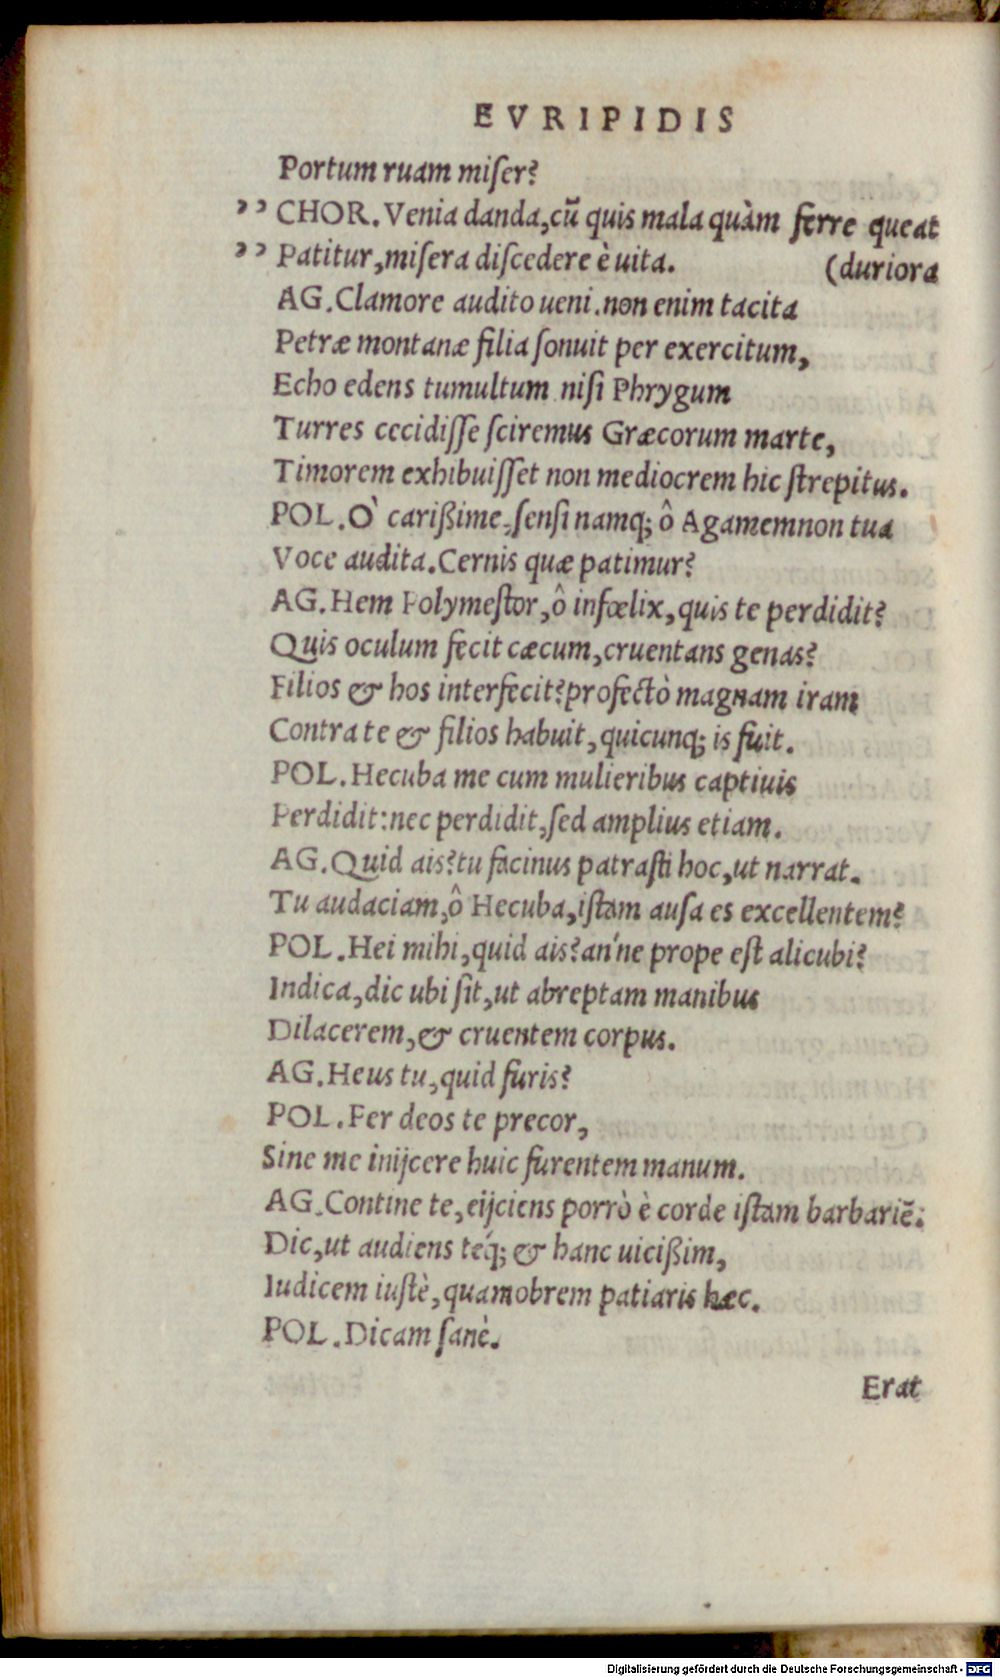 EVRIPIDIS
Portum ruam miſer?
,, CHOR. Venia danda, cū quis mala quàm ferre queat
,, Patitur, miſera diſcedere è uita. (duriora
AG. Clamore audito ueni. non enim tacita
Petræ montanæ filia ſonuit per exercitum,
Echo edens tumultum niſi Phrygum
Turres cecidiſſe ſciremus Græcorum marte,
Timorem exhibuiſſet non mediocrem hic ſtrepitus.
POL. O` carißime, ſenſi namq; ô Agamemnon tua
Voce audita. Cernis quæ patimur?
AG. Hem Polymeſtor, ô infœlix, quis te perdidit?
Quis oculum fecit cæcum, cruentans genas?
Filios & hos interfecit? profectò magnam iram
Contra te & filios habuit, quicunq; is fuit.
POL. Hecuba me cum mulieribus captiuis
Perdidit: nec perdidit, ſed amplius etiam.
AG. Quid ais? tu facinus patraſti hoc, ut narrat.
Tu audaciam, ô Hecuba, iſtam auſa es excellentem?
POL. Hei mihi, quid ais? an'ne prope eſt alicubi?
Indica, dic ubi ſit, ut abreptam manibus
Dilacerem, & cruentem corpus.
AG. Heus tu, quid furis?
POL. Per deos te precor,
Sine me inijcere huic furentem manum.
AG. Contine te, eijciens porrò è corde iſtam barbariē:
Dic, ut audiens téq; & hanc uicißim,
Iudicem iuſtè, quamobrem patiaris hæc.
POL. Dicam ſanè.
Erat
Digitalisierung gefördert durch die Deutsche Forschungsgemeinschaft - DFG